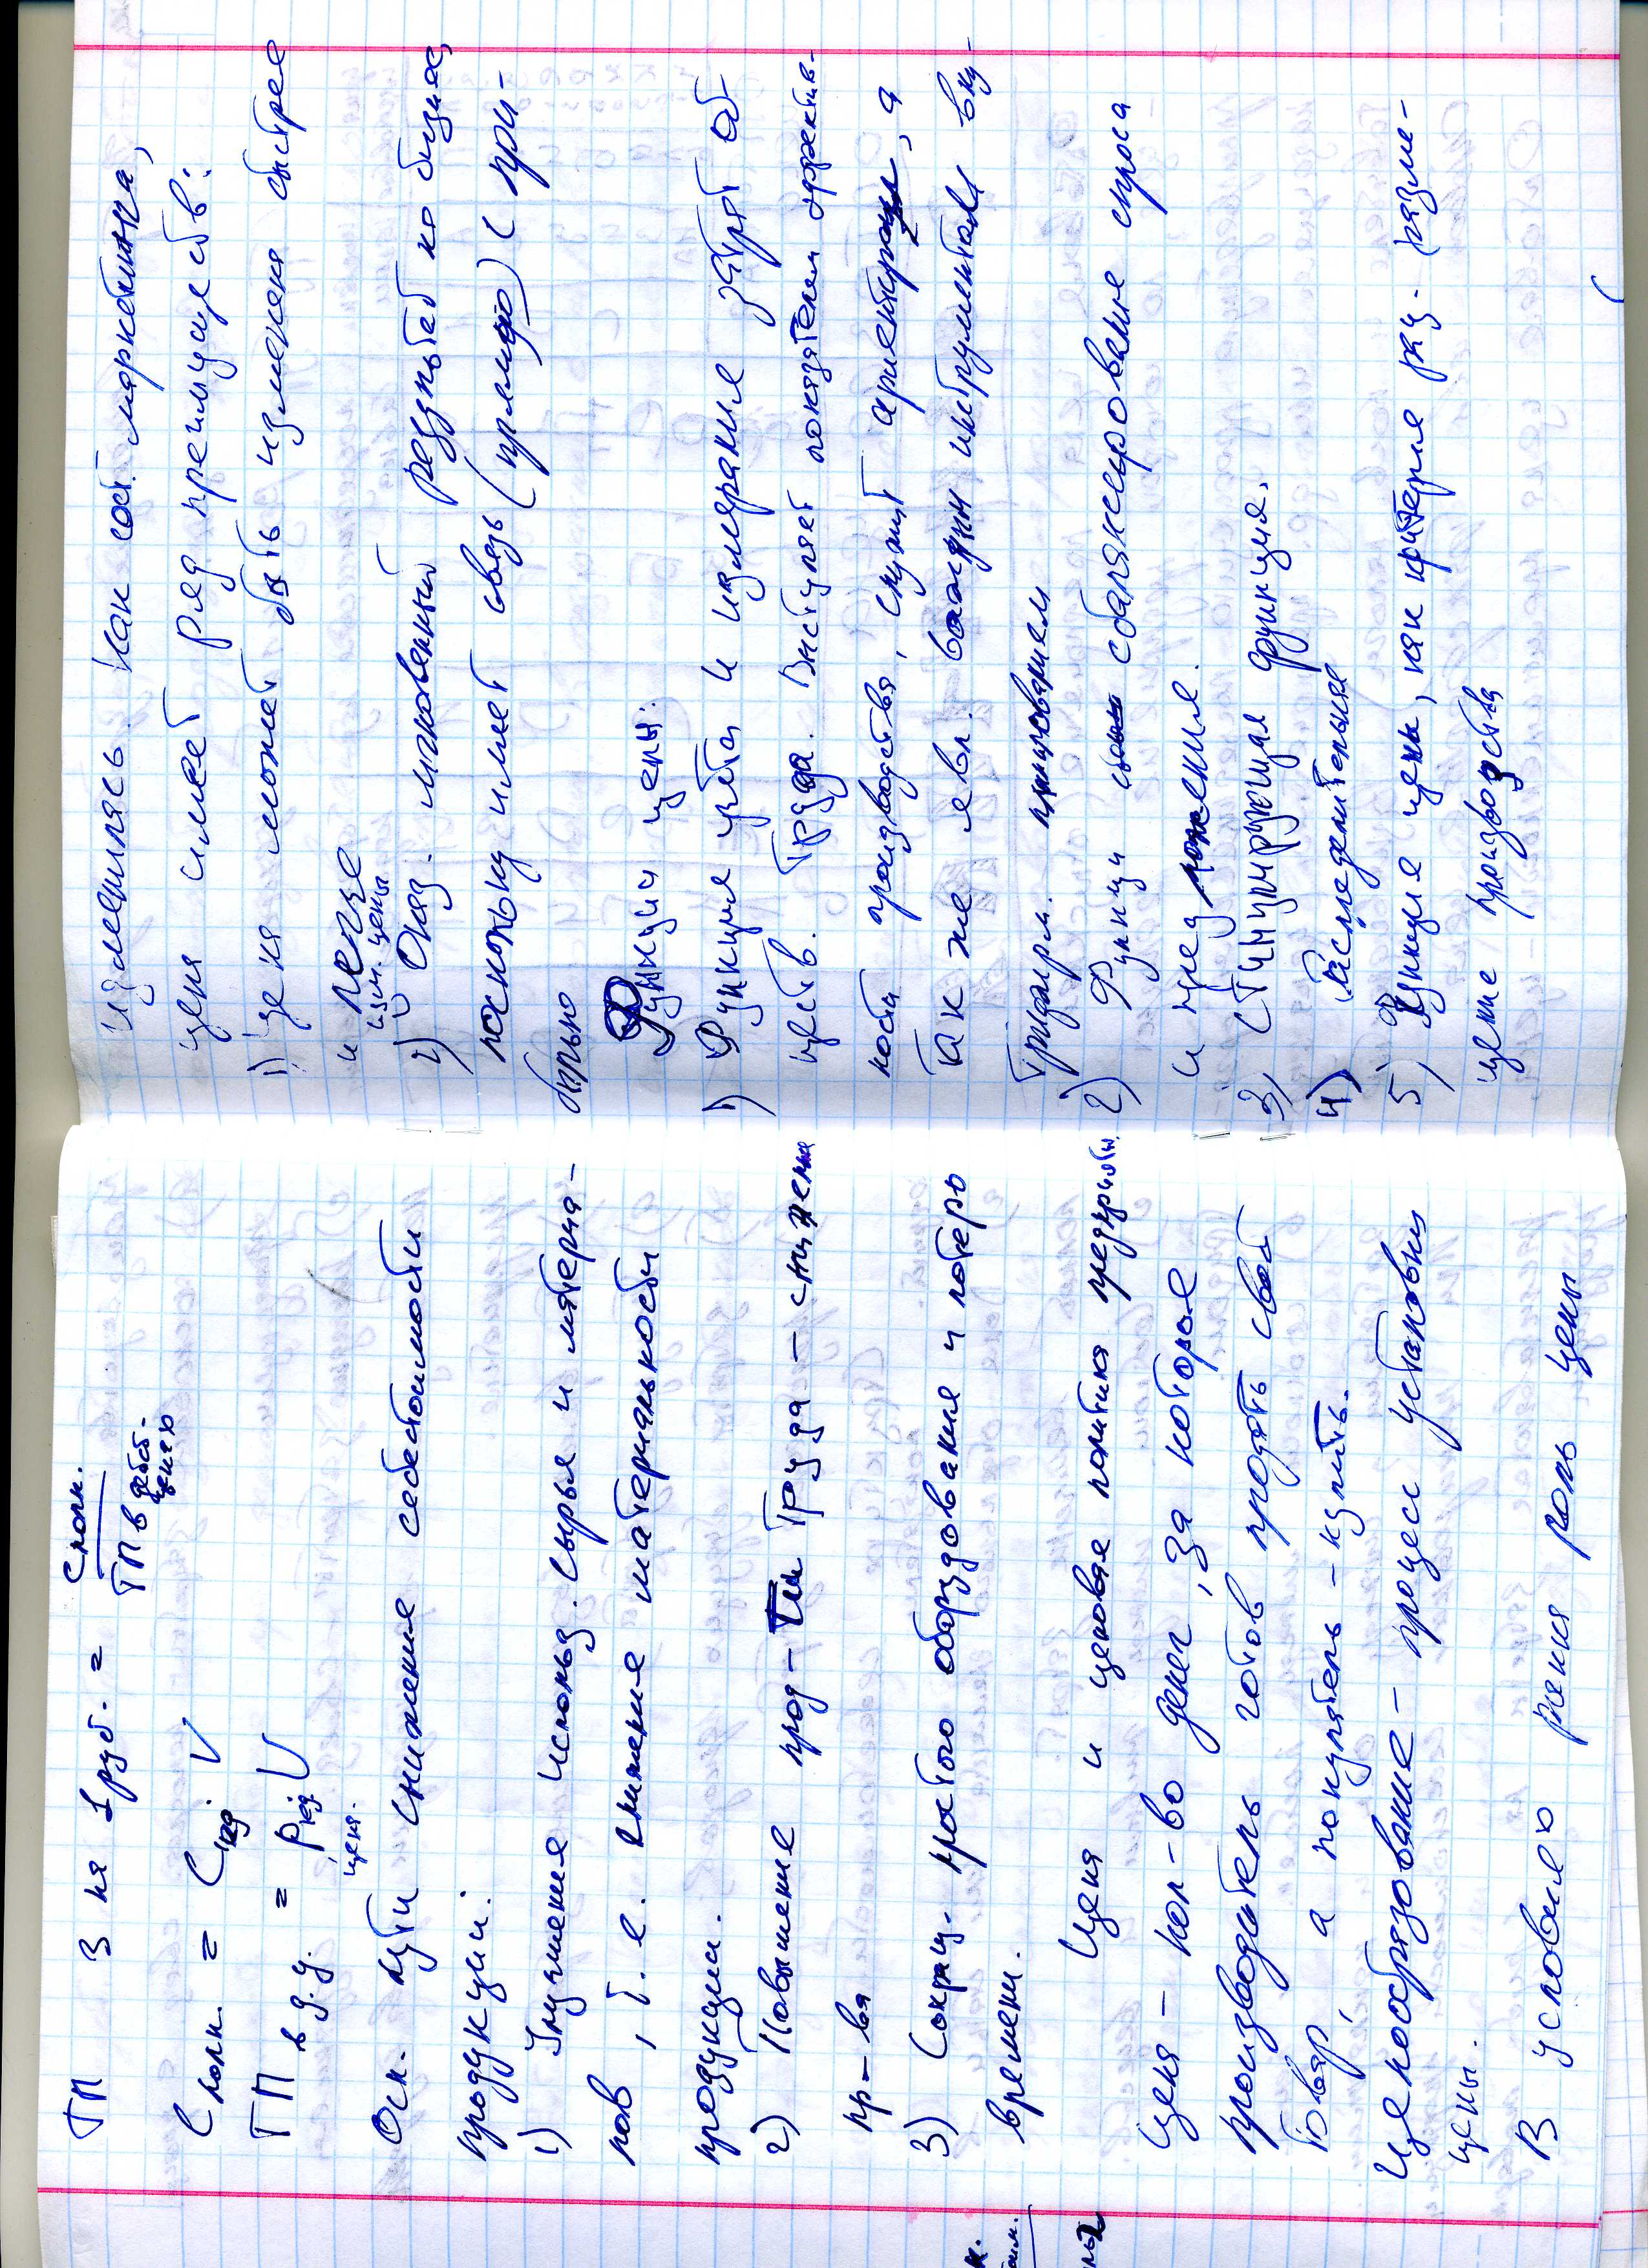 ТП З на 1 руб. = С полн.
ТП в действ. ценах
С полн. = С ед. · V
ТП в д.ц. = P ед. · V
цена
Осн. пути снижения себестоимости
продукции:
1) Улучшения использ. сырья и материа-
лов, т.е. снижение материалькости
продукции.
2) Повышение произ-ти труда - снижения
пр-ва
3) Сокращ. простого оборудования и потерь
времени.
Цена и ценовая политика предприяти.
Цена - кол-во денег, за которое
производитель готов продать свой
товар, а покупатель - купить.
Ценообразование - процесс установки
цены.
В условиях рынка роль цены
изменилась. Как сост. маркетинга,
цена имеет ряд преимуществ:
1) Цена может быть изменена быстрее
и легче
изм. цены
2) Оказ. мгновенный результат на бизнес,
поскольку имеет связь (прямую) с при-
былью
Функции цены:
1) Функция учета и измерания затрат об-
ществ. труда. Выступает показателем эффектив-
ности производства, служит ориентиром, а
так же явл. важным инструментом вну-
трифирм. планованием
2) Функци сбалансирование спроса
и предложения.
3) Стимулирующая функция.
4) Распределительная
5) Функция цены, как критерия рац. размe-
щение производства